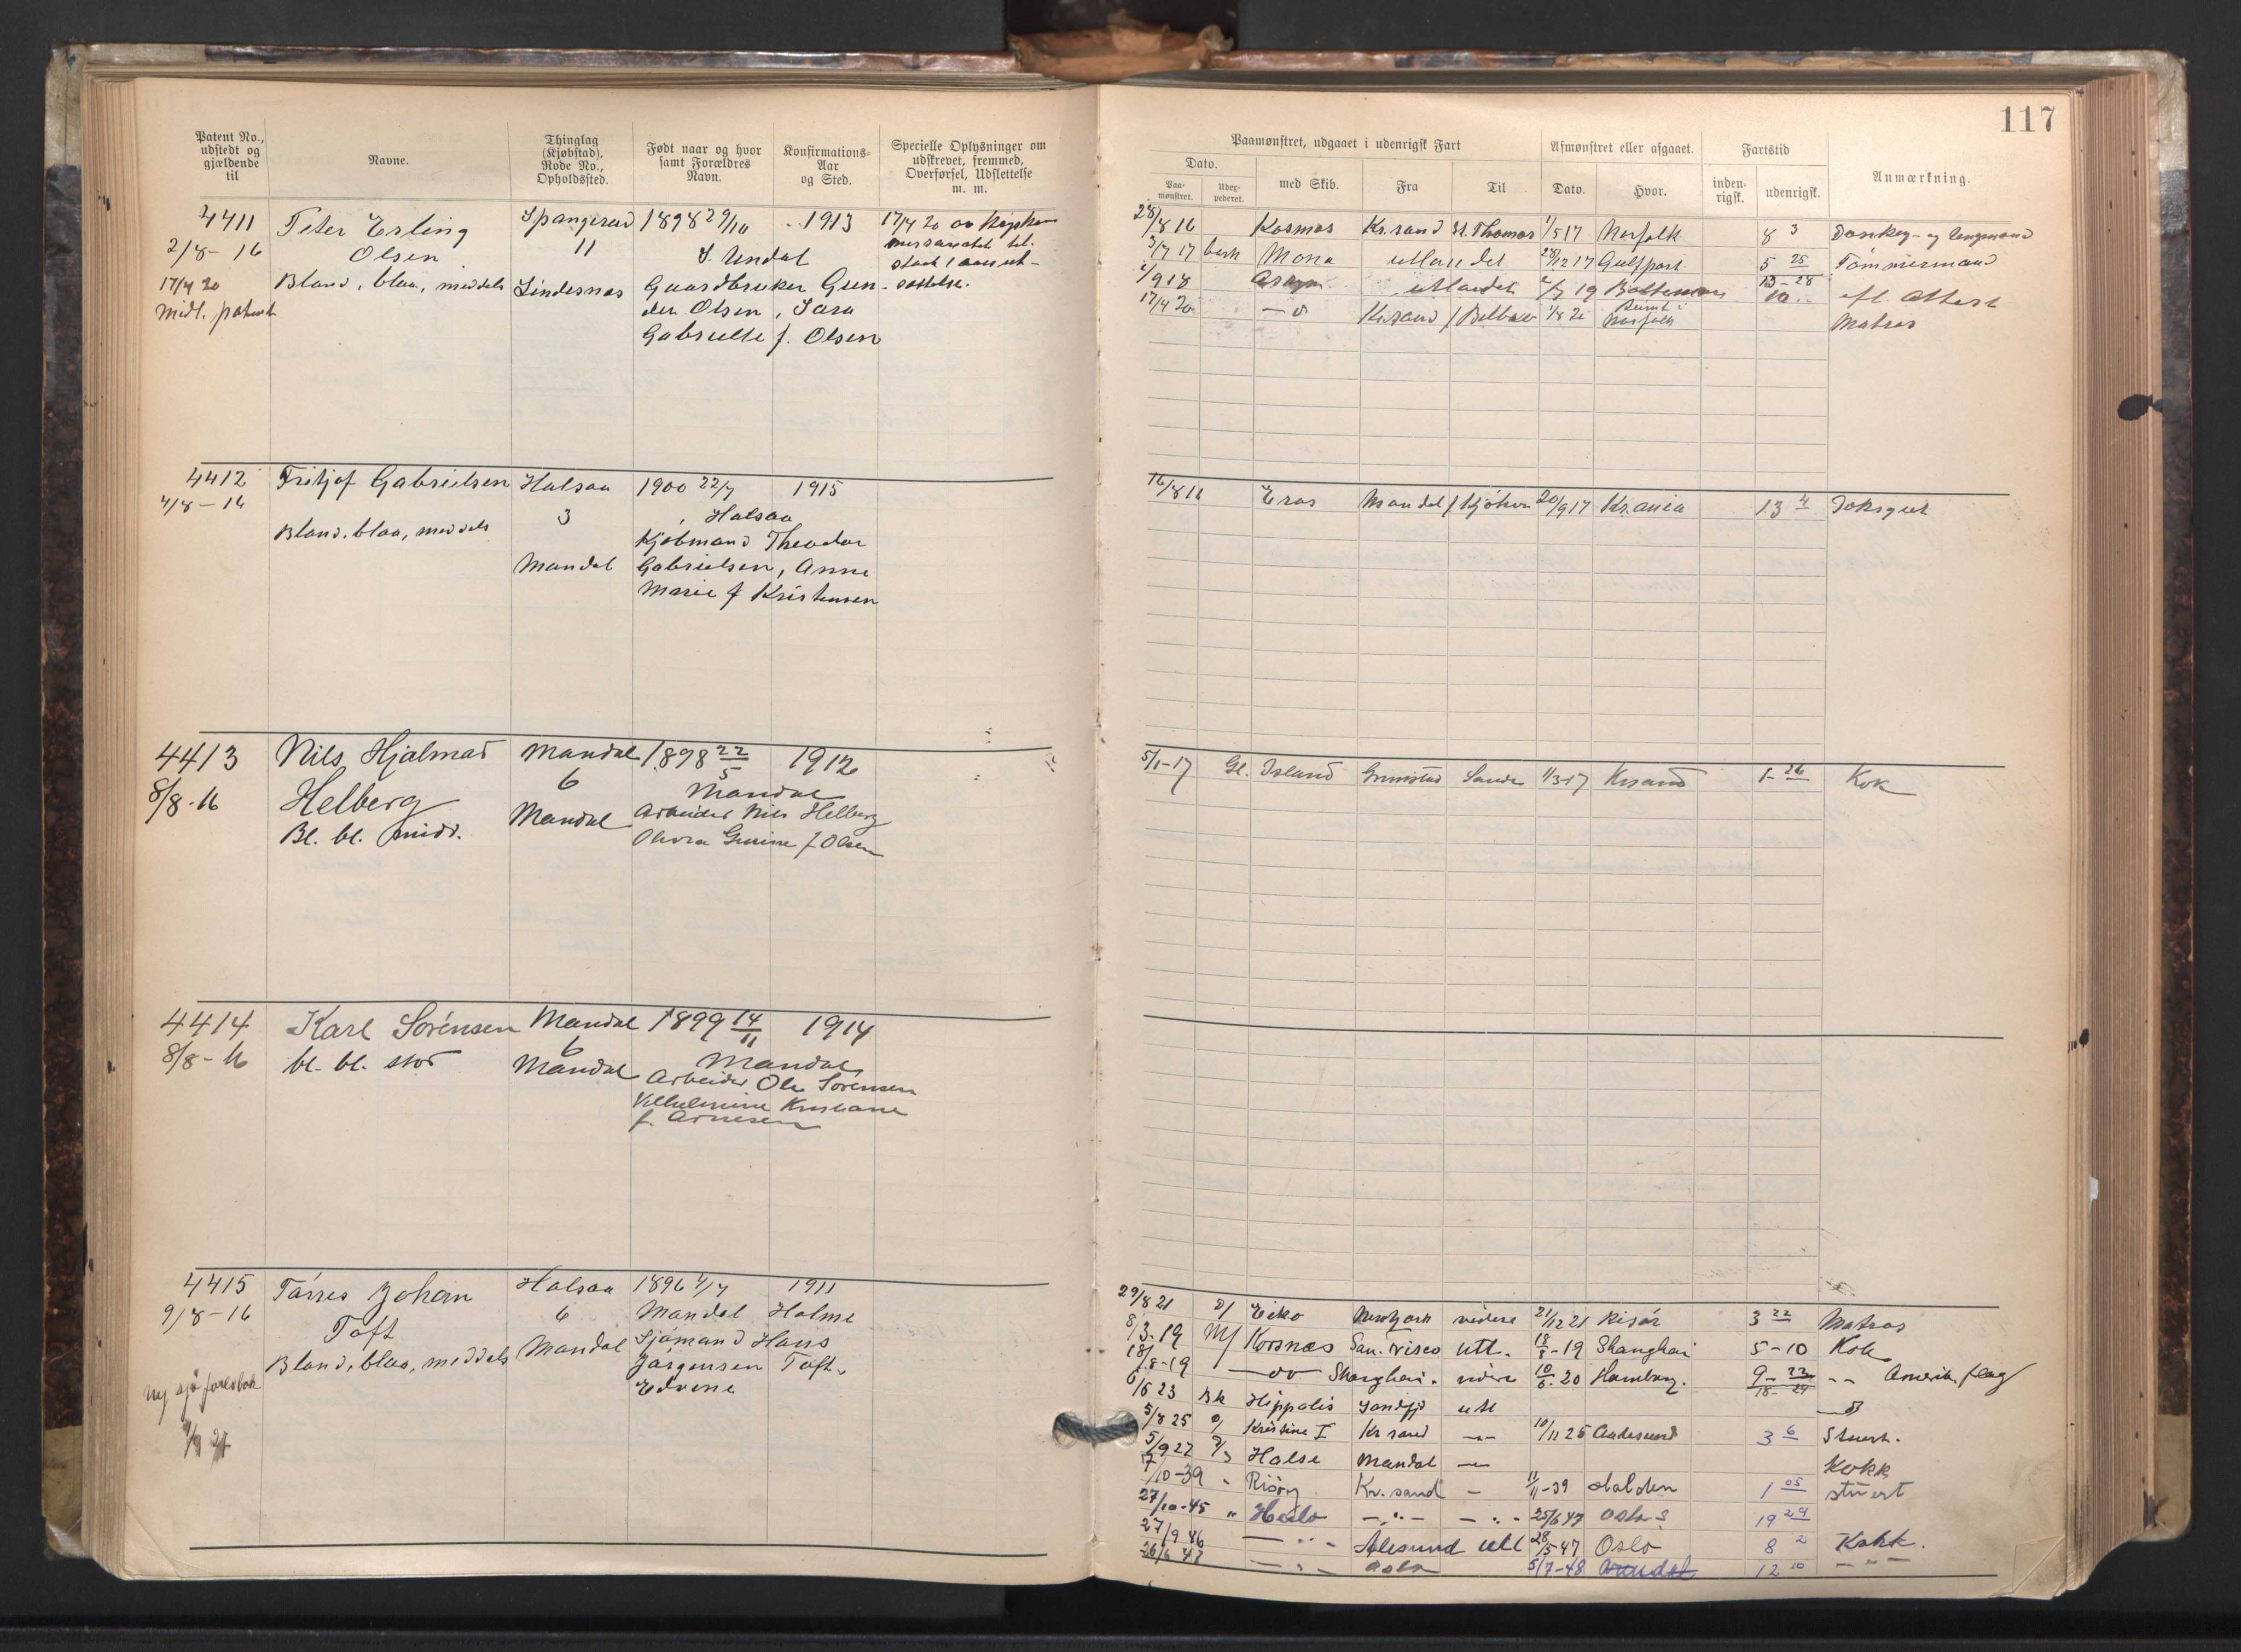 117
Patent No., udstedt og gjældende til
Navne.
Thinglag (Kjøbstad), Rode No., Opholdssted.
Født naar og hvor samt Forældres Navn.
Konfirmations-Aar og Sted.
Specielle Oplysninger om udskrevet, fremmed, Overførsel, Udslettelse m. m.
Paamønstret, udgaaet i udenrigsk Fart
Afmønstret eller afgaaet.
Fartstid
Anmærkning.
Dato.
Paa-mønstret.
med Skib.
Fra
Til
Dato.
Hvor.
inden-rigsk.
udenrigsk.
4411 Peter Erling Spangereid 1898 29/10 1913 17/4 20
2/8 - 16 Olsen 11 S. Undal
17/4 20 Bland, blaa, meddels Lindesnes Gaardbruker Gun-
midl. patent der Olsen, Sara
Gabrielle f. Olsen
28/8 16 Kosmos Kr.sand St. Thomas 1/5 17 Norfolk 8 3 Donkey- og
3/7 17 bark Mona utlandet 28/12 17 Gulfport 5 25 Tømmermand
utlandet 13-28 efl. attest
17/4 20 Kr.sand 1/8 20 Norfolk Matros
4412 Fritjof Gabrielsen Halsaa 1900 22/7 1915
4/8 - 16 3 Halsaa
Bland. blaa, meddels Kjøbmand Theodor
Mandal Gabrielsen, Anne
Marie f Kristensen
16/8 16 Eros Mandal 20/9 17 Kr.ania 13 4
4413 Nils Hjalmar Mandal 1898 22/5 1912
8/8 - 16 Helberg 6 Mandal
Bl. bl. midd. Mandal Arbeider Nils Helberg
f Olsen
5/1-17 Gl. Island Grimstad 1/3-17 Krsand 1-26 Kok
4414 Karl Sörensen Mandal 1899 14/11 1914
8/8 - 16 bl. bl. stor 6 Mandal
Mandal Arbeider Ole Sörensen
Vilhelmine Kristiane
f. Arnesen
4415 Tørres Johan Halsaa 1896 4/7 1911
9/8 - 16 Toft 6 Mandal Holme
Bland, blaa, meddels Mandal Sjømand Hans
Jørgensen Toft,
ny sjøfartsbok
29/8 21 D/ Newyork videre 21/12 21 Risør 3 22 Matros
8/3-19 M/ Korsnes San. Frisco utl. 18/8-19 Shanghai 5-10 Kok
18/8-19 Shanghai. videre 10/6-20 Hamburg. 9-23 Amerik. flag
18-24
6/6 23 Bk Hippalos Sandfj utl
5/8 25 D/ Kristine I Kr sand 10/11 25 3 6 Stuert.
5/9 27 D/s Halse Mandal Kokk
7/10-39 " Kr. sand 11/11-39 Halden 1 05 stuert
27/10-45 " 25/6 47 Oslo 19 29
27/9 46 Ålesund utl 28/5 47 Oslo 8 2 Kokk.
26/6 47 Oslo 5/7-48 12 10